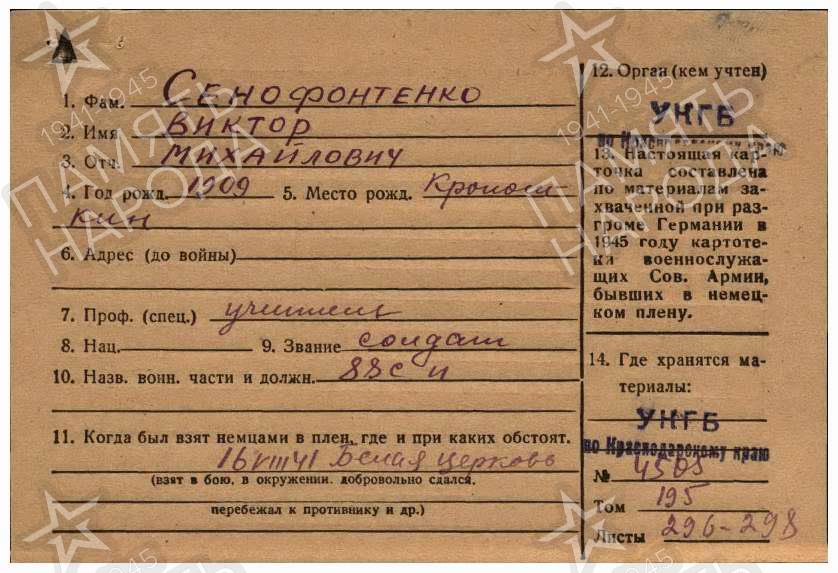 А
1. Фам. СЕНОФОНТЕНКО
2. Имя ВИКТОР
3. Отч. МИХАЙЛОВИЧ
4. Год рожд. 1909 5. Место рожд. Кропот
кин
6. Адрес (до войны)
7. Проф. (спец.) учитель
8. Нац. 9. Звание солдат
10. Назв. воин. части и должн. 88 с п
11. Когда был взят немцами в плен, где и при каких обстоят.
16 VIII 41 Белая церковь
(взят в бою, в окружении, добровольно сдался,
перебежал к противнику и др.)
12. Орган (кем учтен)
УНГБ
по Краснодарскому краю
13. Настоящая кар-
точка составлена
по материалам за-
хваченной при раз-
громе Германии в
1945 году картоте-
ки военнослужа-
щих Сов. Армии,
бывших в немец-
ком плену.
14. Где хранятся ма-
териалы:
УНГБ
по Краснодарскому краю
№ 4505
Том 195
Листы 296-298
ПАМЯТЬ
НАРОДА
1941-1945
ПАМЯТЬ
НАРОДА
1941-1945